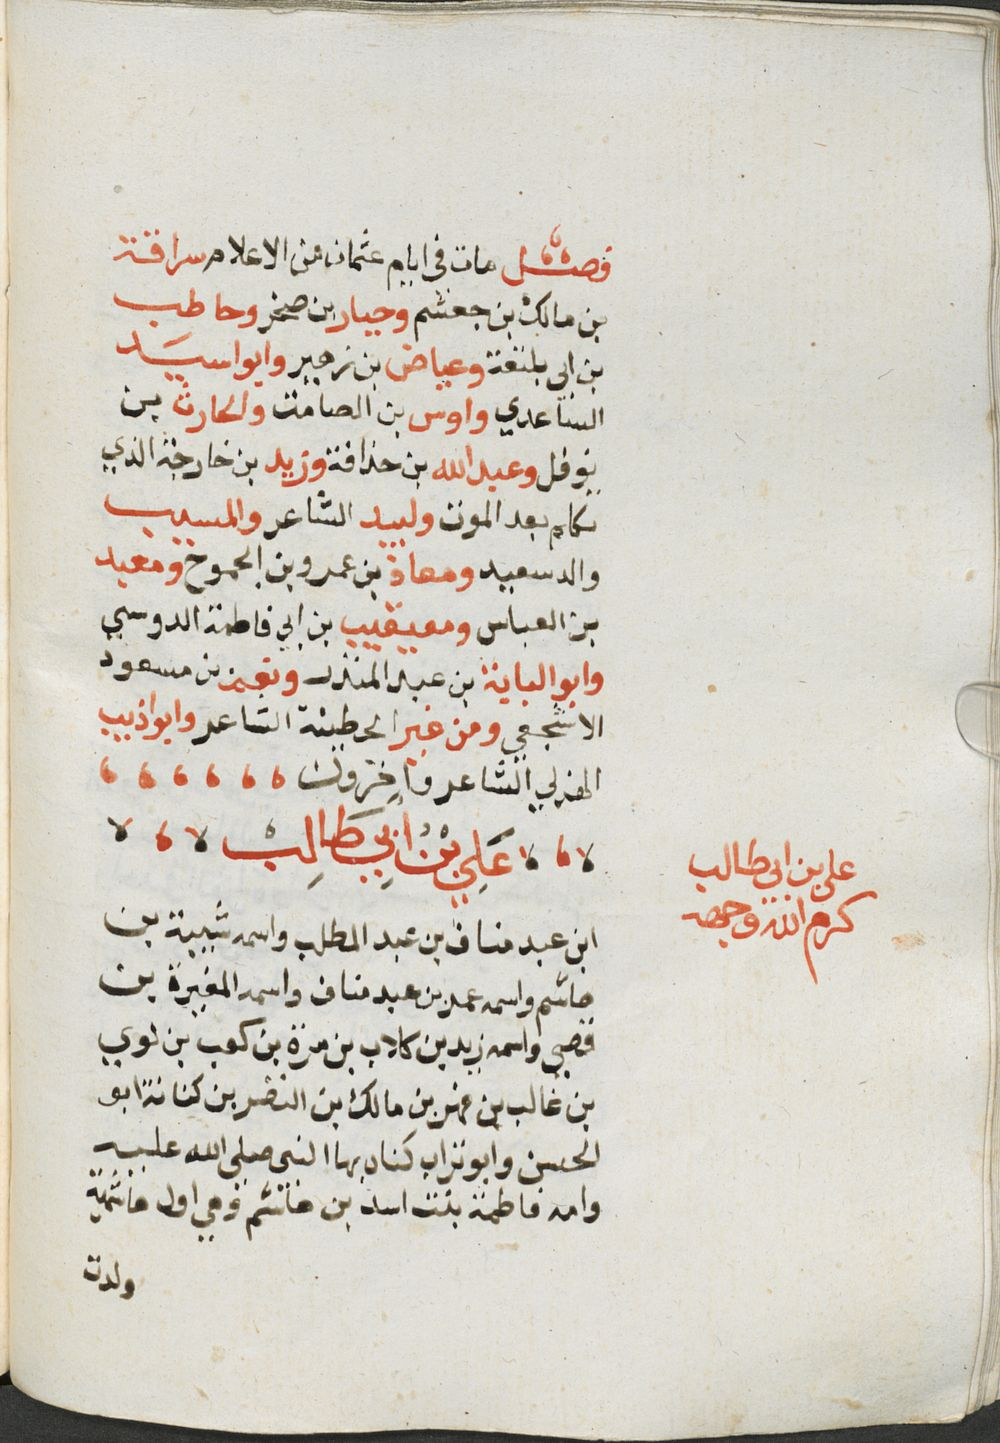 فصل مات في ايام عثمان من الاعلام سراقة
بن مالك بن جعشم وجبار بن صخر وحاطب
بن ابي بلتعة وعياض بن زهير وابو اسيد
الساعدي واوس بن الصامت والحارث بن
نوفل وعبد الله بن حذافة وزيد بن خارجة الذي
تكلم بعد الموت ولبيد الشاعر والمسيب
والد سعيد ومعاذ بن عمرو بن الجموح ومعبد
بن العباس ومعيقيب بن ابي فاطمة الدوسي
وابو لبابة بن عبد المنذر ونعيم بن مسعود
الاشجعي ومن غير الحطيئة الشاعر وابو اذيب
الهذلي الشاعر واخرون
عَلِي بْنُ اَبِي طَالِبْ
علي بن ابي طالب
كرم الله وجهه
ابن عبد مناف بن عبد المطلب واسمه شيبة بن
هاشم واسمه عمر بن عبد مناف واسمه المغيرة بن
قصي واسمه زيد بن كلاب بن مرة بن كعب بن لوي
بن غالب بن فهر بن مالك بن النضر بن كنانة ابو
الحسن وابو تراب كناه بها النبي صلى الله عليه
وامه فاطمة بنت اسد بن هاشم وهي اول هاشمية
ولدت